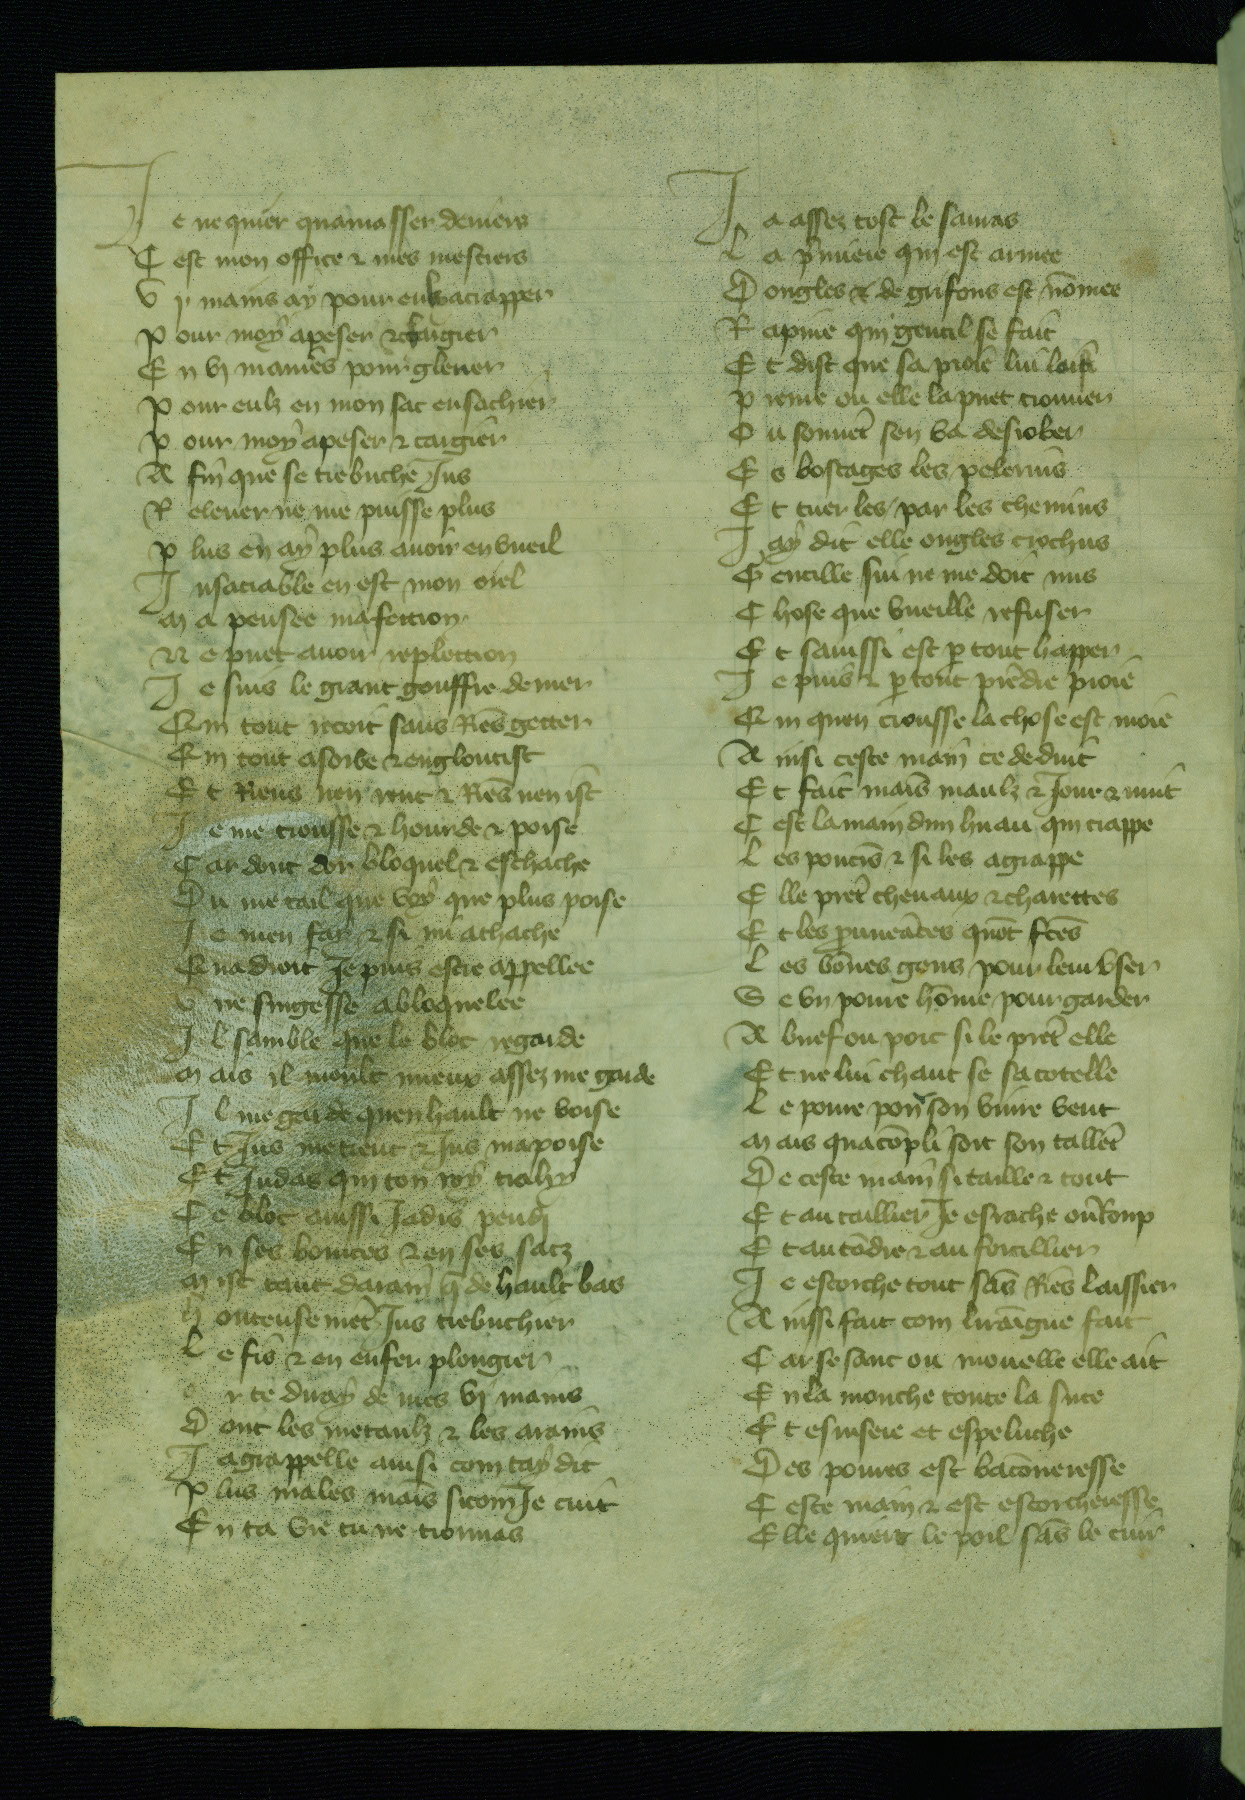 Je ne quier quamasser deniers
C est mon office ⁊ mes mestiers
V j mains ay pour eulx atrapper
P our moy apeser ⁊ chargier
E n vj manies pour glener
P our eulx en mon sac ensachier
P our moy apeser ⁊ cargier
A fin que se trebuche Jus
R elever ne me puisse plus
P lus en ay plus avoir en vueil
I nsaciable en est mon oiel
M a pensee mafection
N e puet avoir replection
J e suis le grant gouffre de mer
Q ui tout recoit sans Riēs getter
Q ui tout asorbe ⁊ engloutist
E t Riens nen rent ⁊ Riēs nen ist
J e me trousse ⁊ hourde ⁊ poise
C ar dont dor bloquel ⁊ eschache
D u metail que voy que plus poise
J e men fay ⁊ si mi athache
Q ua droit Je puis estre appellee
V ne singesse abloquelee
I l samble que le bloc regarde
M ais il moult mieux assez me garde
I l me garde quen hault ne voise
E t Jus me tient ⁊ Jus mapoise
E t Judas qui ton roy trahy
C e bloc aussi Jadis pendi
E n ses boистes ⁊ en ses sacz
M ist tant darain q̄ de hault bas
H onteusemēt Jus trebuchier
L e fis ⁊ en enfer plongier
r te diray de mes vj mains
D ont les metaulx ⁊ les arains
J agrappelle ainsi com tay dit
P lus males mais sicom Je cuit
E n ta vie tu ne trouvas
J a assez tost le sauras
L a p̄miere qui est armee
D ongles ⁊ de grifons est nōmee
R apine qui gentil se fait
E t dist que sa proie lui loist
P renre ou elle la puet trouver
O u souvēt sen va desrober
E s boscages les pelerins
E t tuer les par les chemins
J ay dit elle ongles crochus
G entille sui ne me doit nus
C hose que vueille refuser
E t saussi est p̱ tout happer
J e puis ⁊ p̱ tout prēdre proie
Q ui quen trousse la chose est moie
A insi ceste main ce deduit
E t fait mais maulx ⁊ Jour ⁊ nuit
C est la main dun huau qui trappe
L es poucis ⁊ si les agrappe
E lle prēt chevaux ⁊ charettes
E t les p̱vueāces quōt fctēs
L es bōnes gens pour leur vser
S e vn povre hōme pour garder
A buef ou porc si le prēt elle
E t ne lui chaut se sa cotelle
L e povre pour son vivre vent
M ais quacōpli soit son tallēt
D e ceste main si taille ⁊ tout
E t au taillier Je esrache ou Romp
E t au tōdre ⁊ au forcillier
J e escorche tout sās Riēs laissier
A inssi fait com lirāigne fait
C ar se sanc ou mouelle elle ait
E n la mouche toute la suce
E t esuisere et espeluche
D es povres est bacōneresse
C este main ⁊ est escorcheresse
E lle quiert le poil sās le cuir